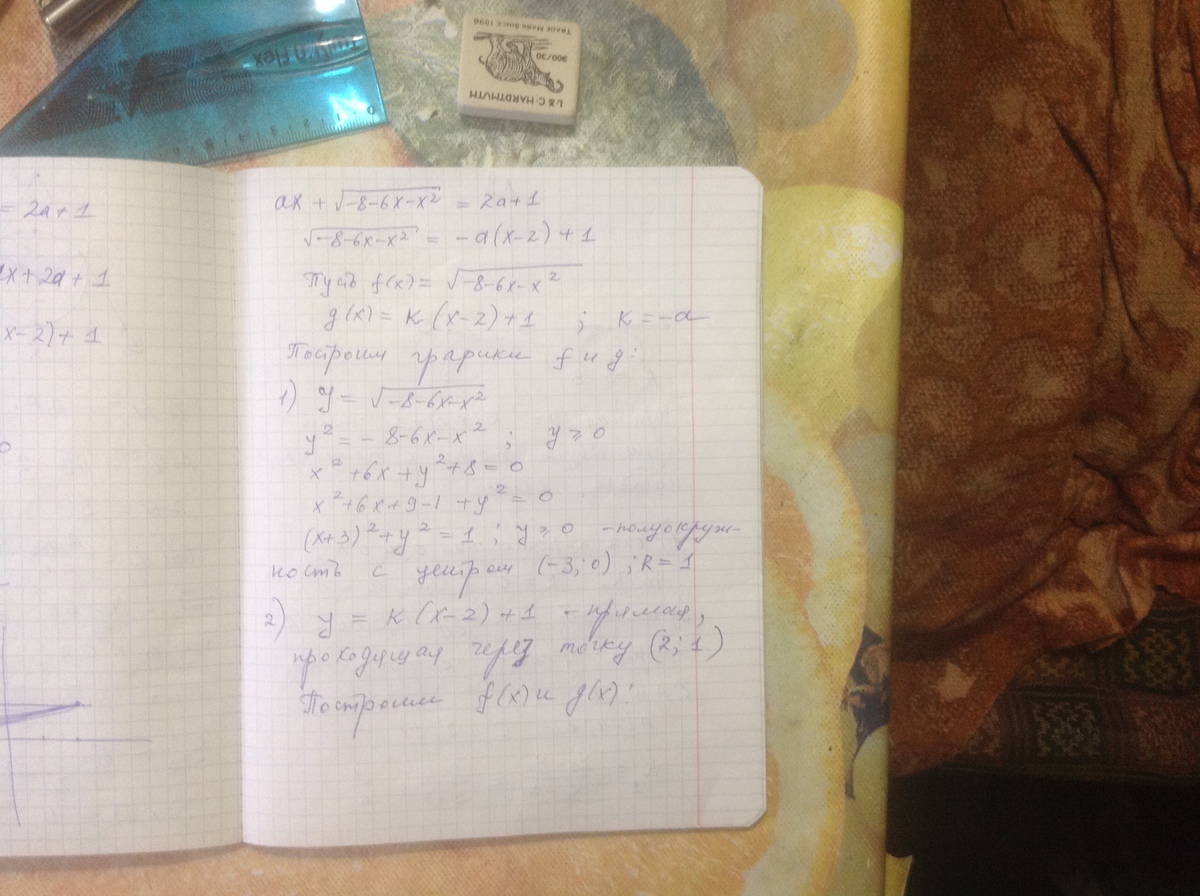 TRADE MARK SINCE 1896
300/30
L. & C. HARDTMUTH
Flex
= 2a+1
x+2a+1
x-2)+1
ax + √-8-6x-x² = 2a+1
√-8-6x-x² = -a(x-2)+1
Пусть f(x) = √-8-6x-x²
g(x) = k(x-2)+1 ; k = -a
Построим графики f и g:
1) y = √-8-6x-x²
y² = -8-6x-x² ; y ≥ 0
x² + 6x + y² + 8 = 0
x² + 6x + 9 - 1 + y² = 0
(x+3)² + y² = 1 ; y ≥ 0 - полуокруж-
ность с центром (-3; 0) ; R = 1
2) y = k(x-2)+1 - прямая,
проходящая через точку (2; 1)
Построим f(x) и g(x):